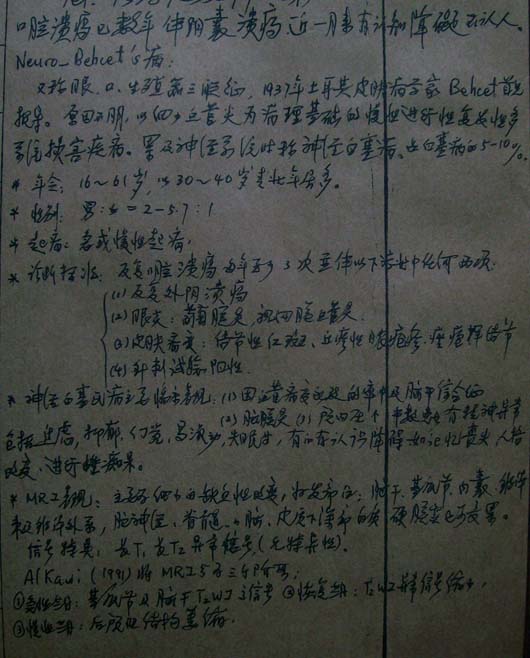 口腔溃疡已数年 伴阴囊溃疡 近一月来有认知障碍 不认人。
Neuro-Behcet's病:
又称眼、口、生殖器三联征, 1937年土耳其皮肤病学家 Behcet 首先
报导。原因不明, 以细小血管炎为病理基础的慢性进行性复发性多
系统损害疾病。累及神经系统时称神经白塞病。占白塞病的5-10%。
* 年令: 16~61岁, 以30~40岁青壮年居多。
* 性别: 男:女 = 2-5.7:1
* 起病: 急或慢性起病,
* 诊断标准: 反复口腔溃疡每年至少3次 并伴以下 中任何两项:
(1) 反复外阴溃疡
(2) 眼炎: 葡萄膜炎, 视网膜血管炎
(3) 皮肤病变: 结节性红斑、 痤疮样结节
(4) 针刺试验阳性。
* 神经白塞氏病主要临床表现: (1) 因血管病变引起的卒中及脑干综合征
(2) 脑膜炎 有精神异常
包括焦虑, 抑郁, 幻觉, 易激动, 失眠等, 有的有认识障碍如记忆丧失 人格
改变、进行性痴呆。
* MRI表现: 主要为细小的缺血性改变, 好发部位: 脑干、基底节、内囊、
脑神经、脊髓、小脑、皮质下深部白质 硬膜窦也可受累。
信号特点: 长T1 长T2 异常信号 (无特异性)。
Al Kawi (1991) 将 MRI 分三个阶段:
①急性期: 基底节及脑干T2WI高信号 ②恢复期: T2WI异常信号缩小,
③慢性期: 后颅凹结构萎缩。